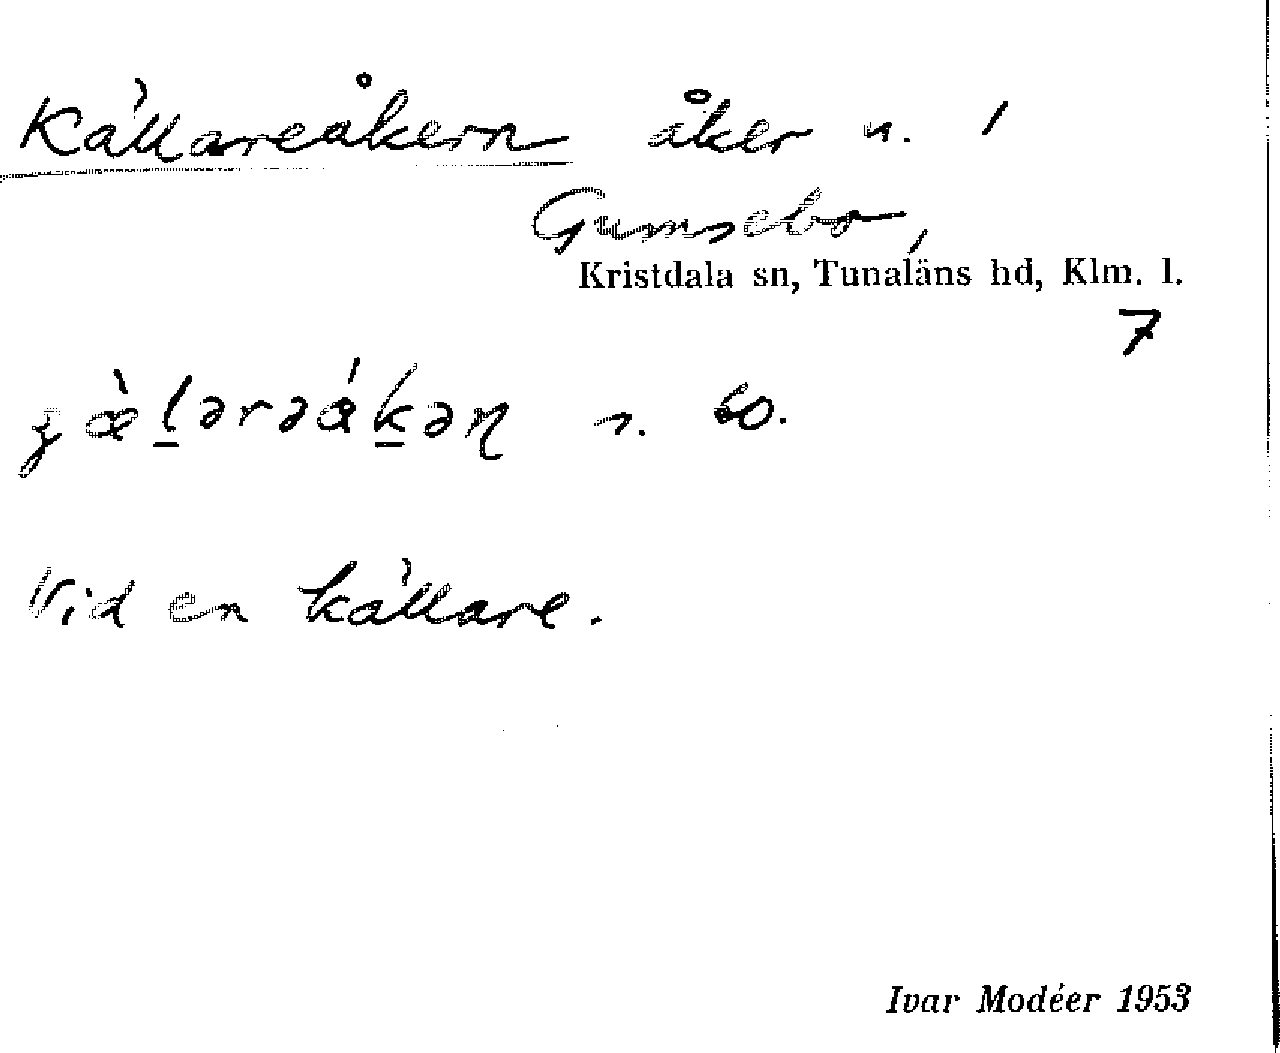 Källareåkern åker n. 1
Gumsebo,
Kristdala sn, Tunaläns hd, Klm. l.
7
Vid en källare.
Ivar Modéer 1953